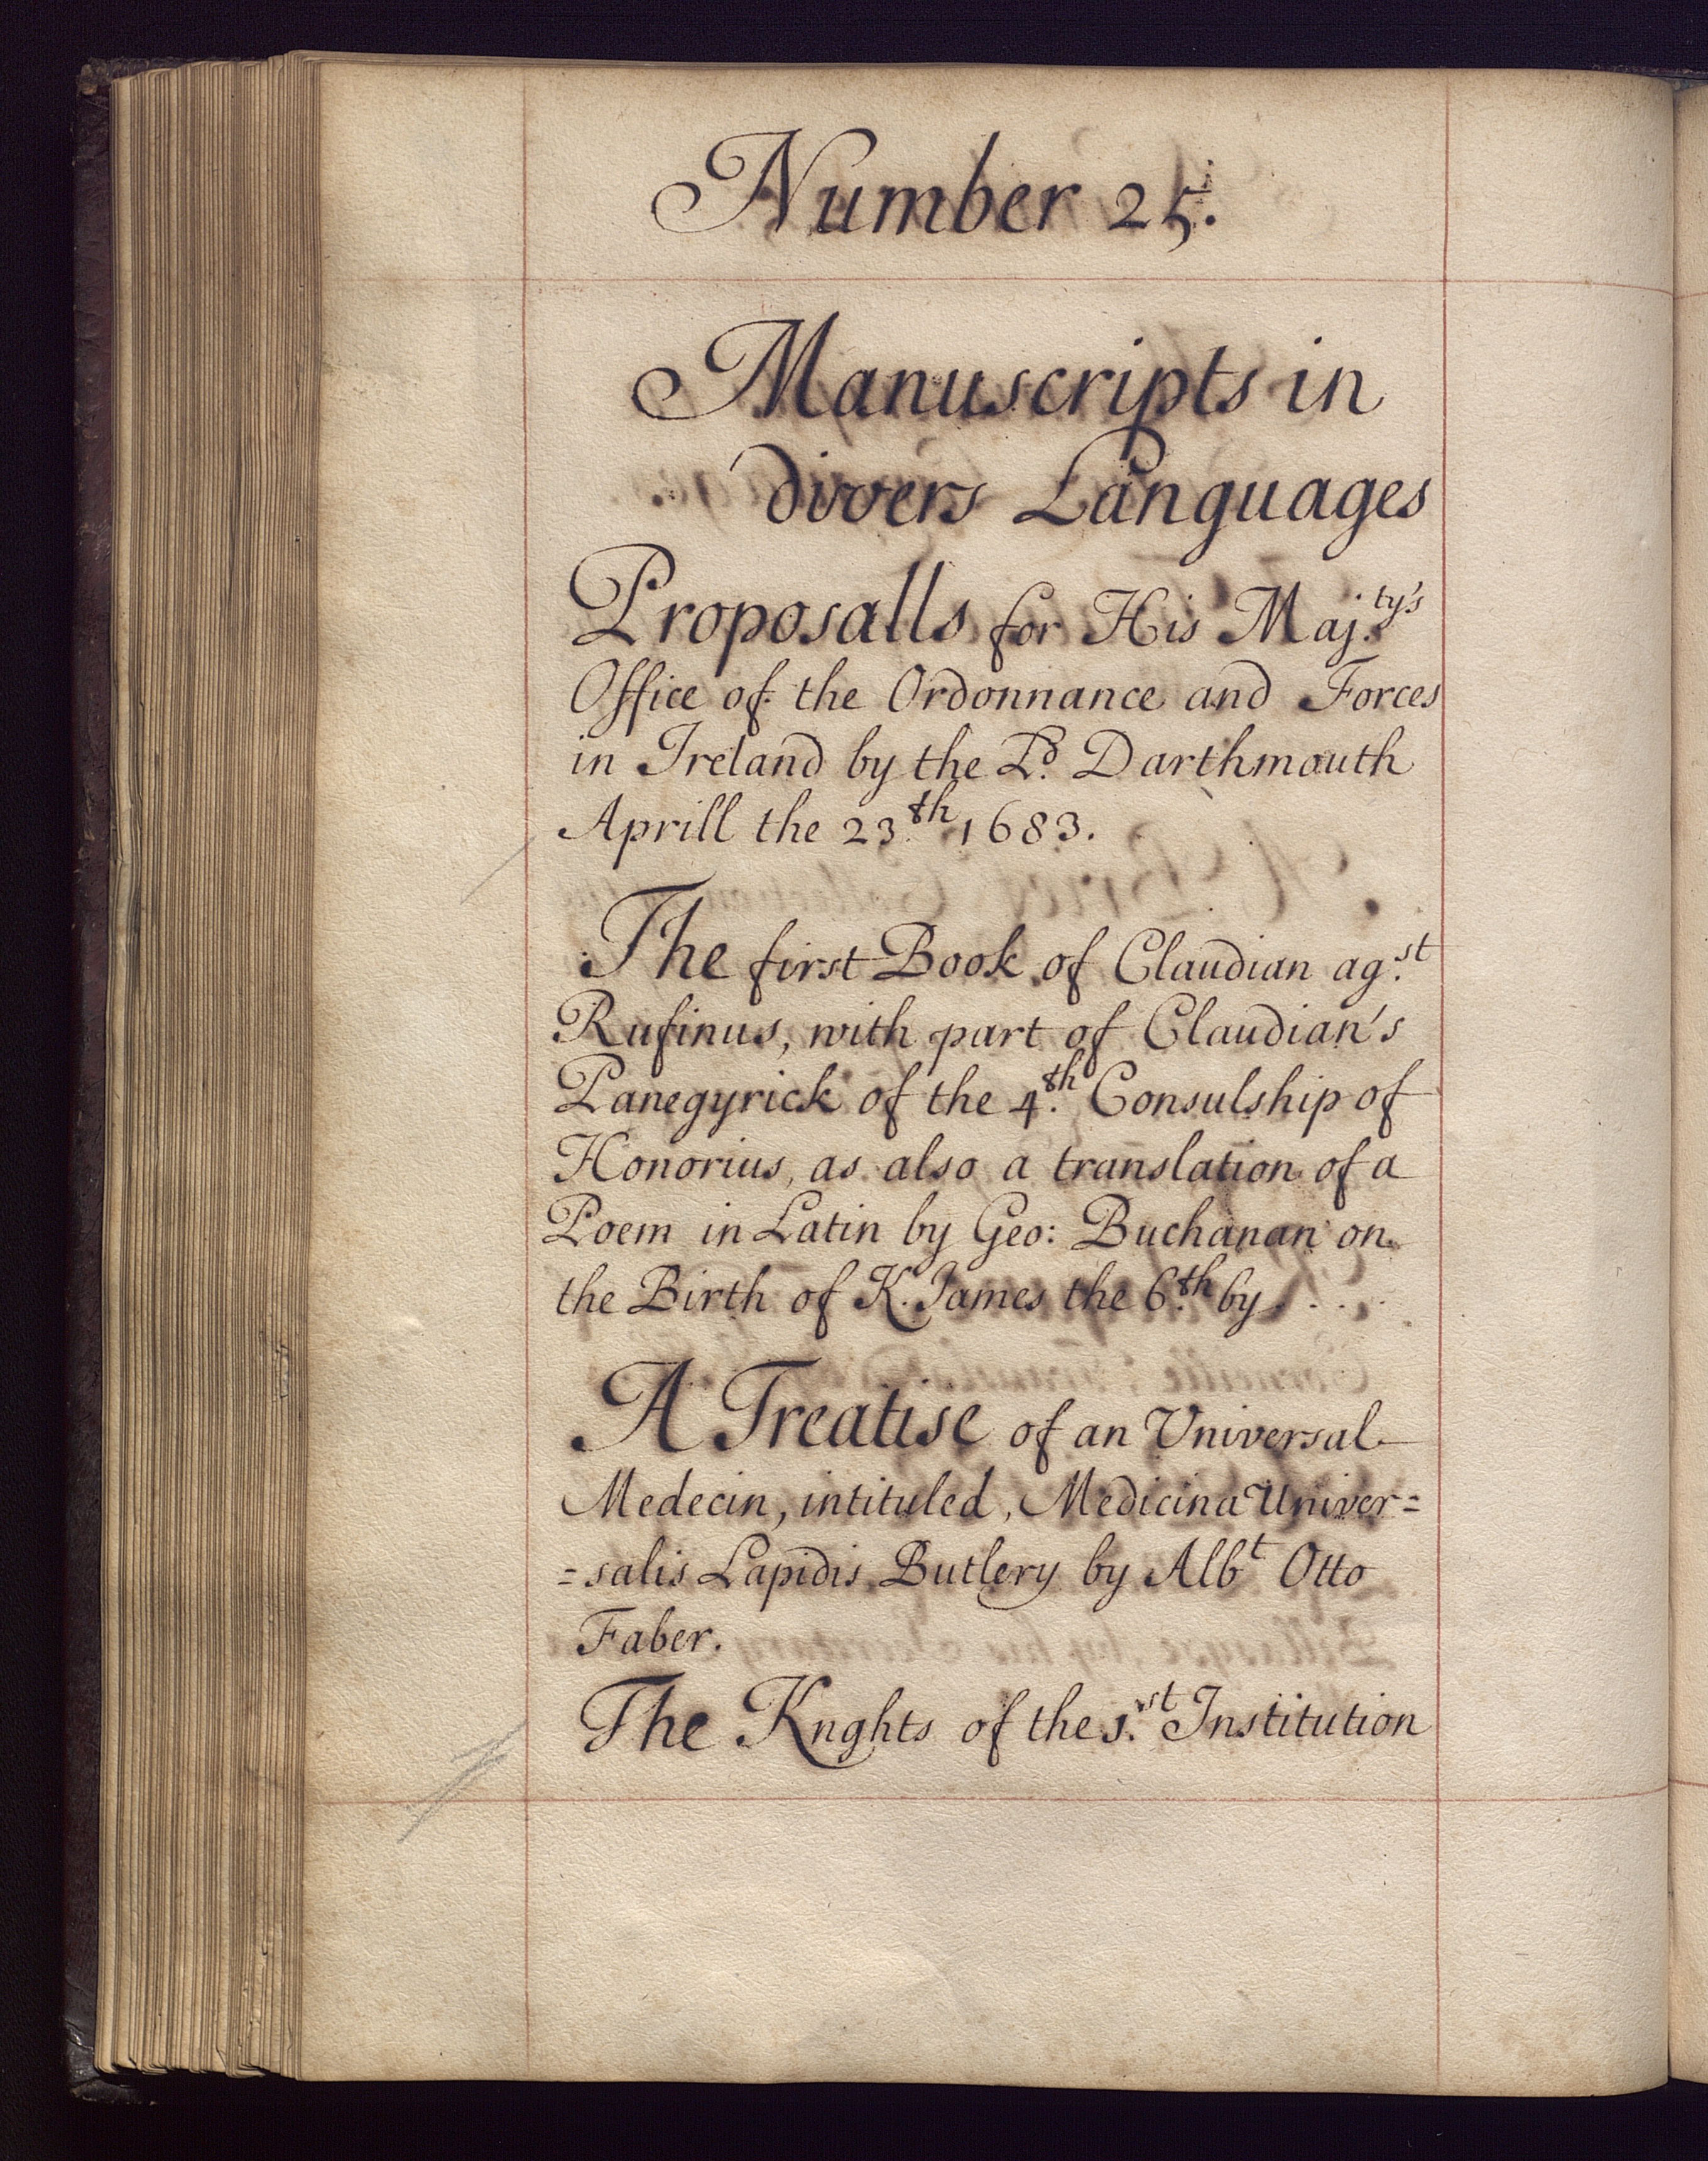 Number 25.
Manuscripts in
divers Languages
Proposalls for His Maj.ty's
Office of the Ordonnance and Forces
in Ireland by the Ld. Darthmouth
Aprill the 23.th 1683.
The first Book of Claudian ag.st
Rufinus, with part of Claudian's
Panegyrick of the 4.th Consulship of
Honorius, as also a translation of a
Poem in Latin by Geo: Buchanan on
the Birth of K. James the 6.th by . . . .
A Treatise of an Universal
Medecin, intituled, Medicina Univer=
=salis Lapidis Butlery by Albt Otto
Faber.
The Knghts of the 1.st Institution